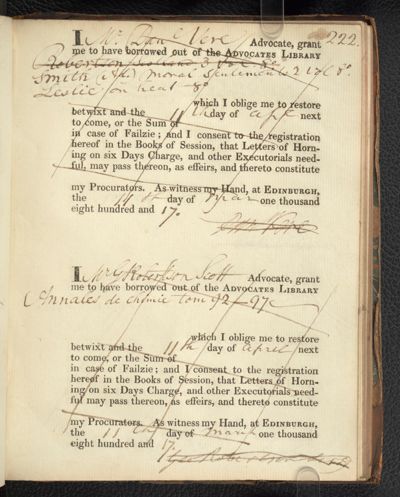 222.
I Mr. Danl Vere Advocate, grant
me to have borrowed out of the ADVOCATES LIBRARY
Robertson's Scotland 3 vol 8o
Smith (A) Moral Sentiments 2 vol 8o
Leslie on heat 8o
which I oblige me to restore
betwixt and the 11th day of apl next
to come, or the Sum of
in case of Failzie; and I consent to the registration
hereof in the Books of Session, that Letters of Horn-
ing on six Days Charge, and other Executorials need-
ful, may pass thereon, as effeirs, and thereto constitute
my Procurators. As witness my Hand, at EDINBURGH,
the 11th day of Mar one thousand
eight hundred and 17.
Vere
I Mr G Robertson Scott Advocate, grant
me to have borrowed out of the ADVOCATES LIBRARY
Annales de chimie tom 92-97
which I oblige me to restore
betwixt and the 11th day of april next
to come, or the Sum of
in case of Failzie; and I consent to the registration
hereof in the Books of Session, that Letters of Horn-
ing on six Days Charge, and other Executorials need-
ful may pass thereon, as effeirs, and thereto constitute
my Procurators. As witness my Hand, at EDINBURGH,
the 11th day of march one thousand
eight hundred and 17